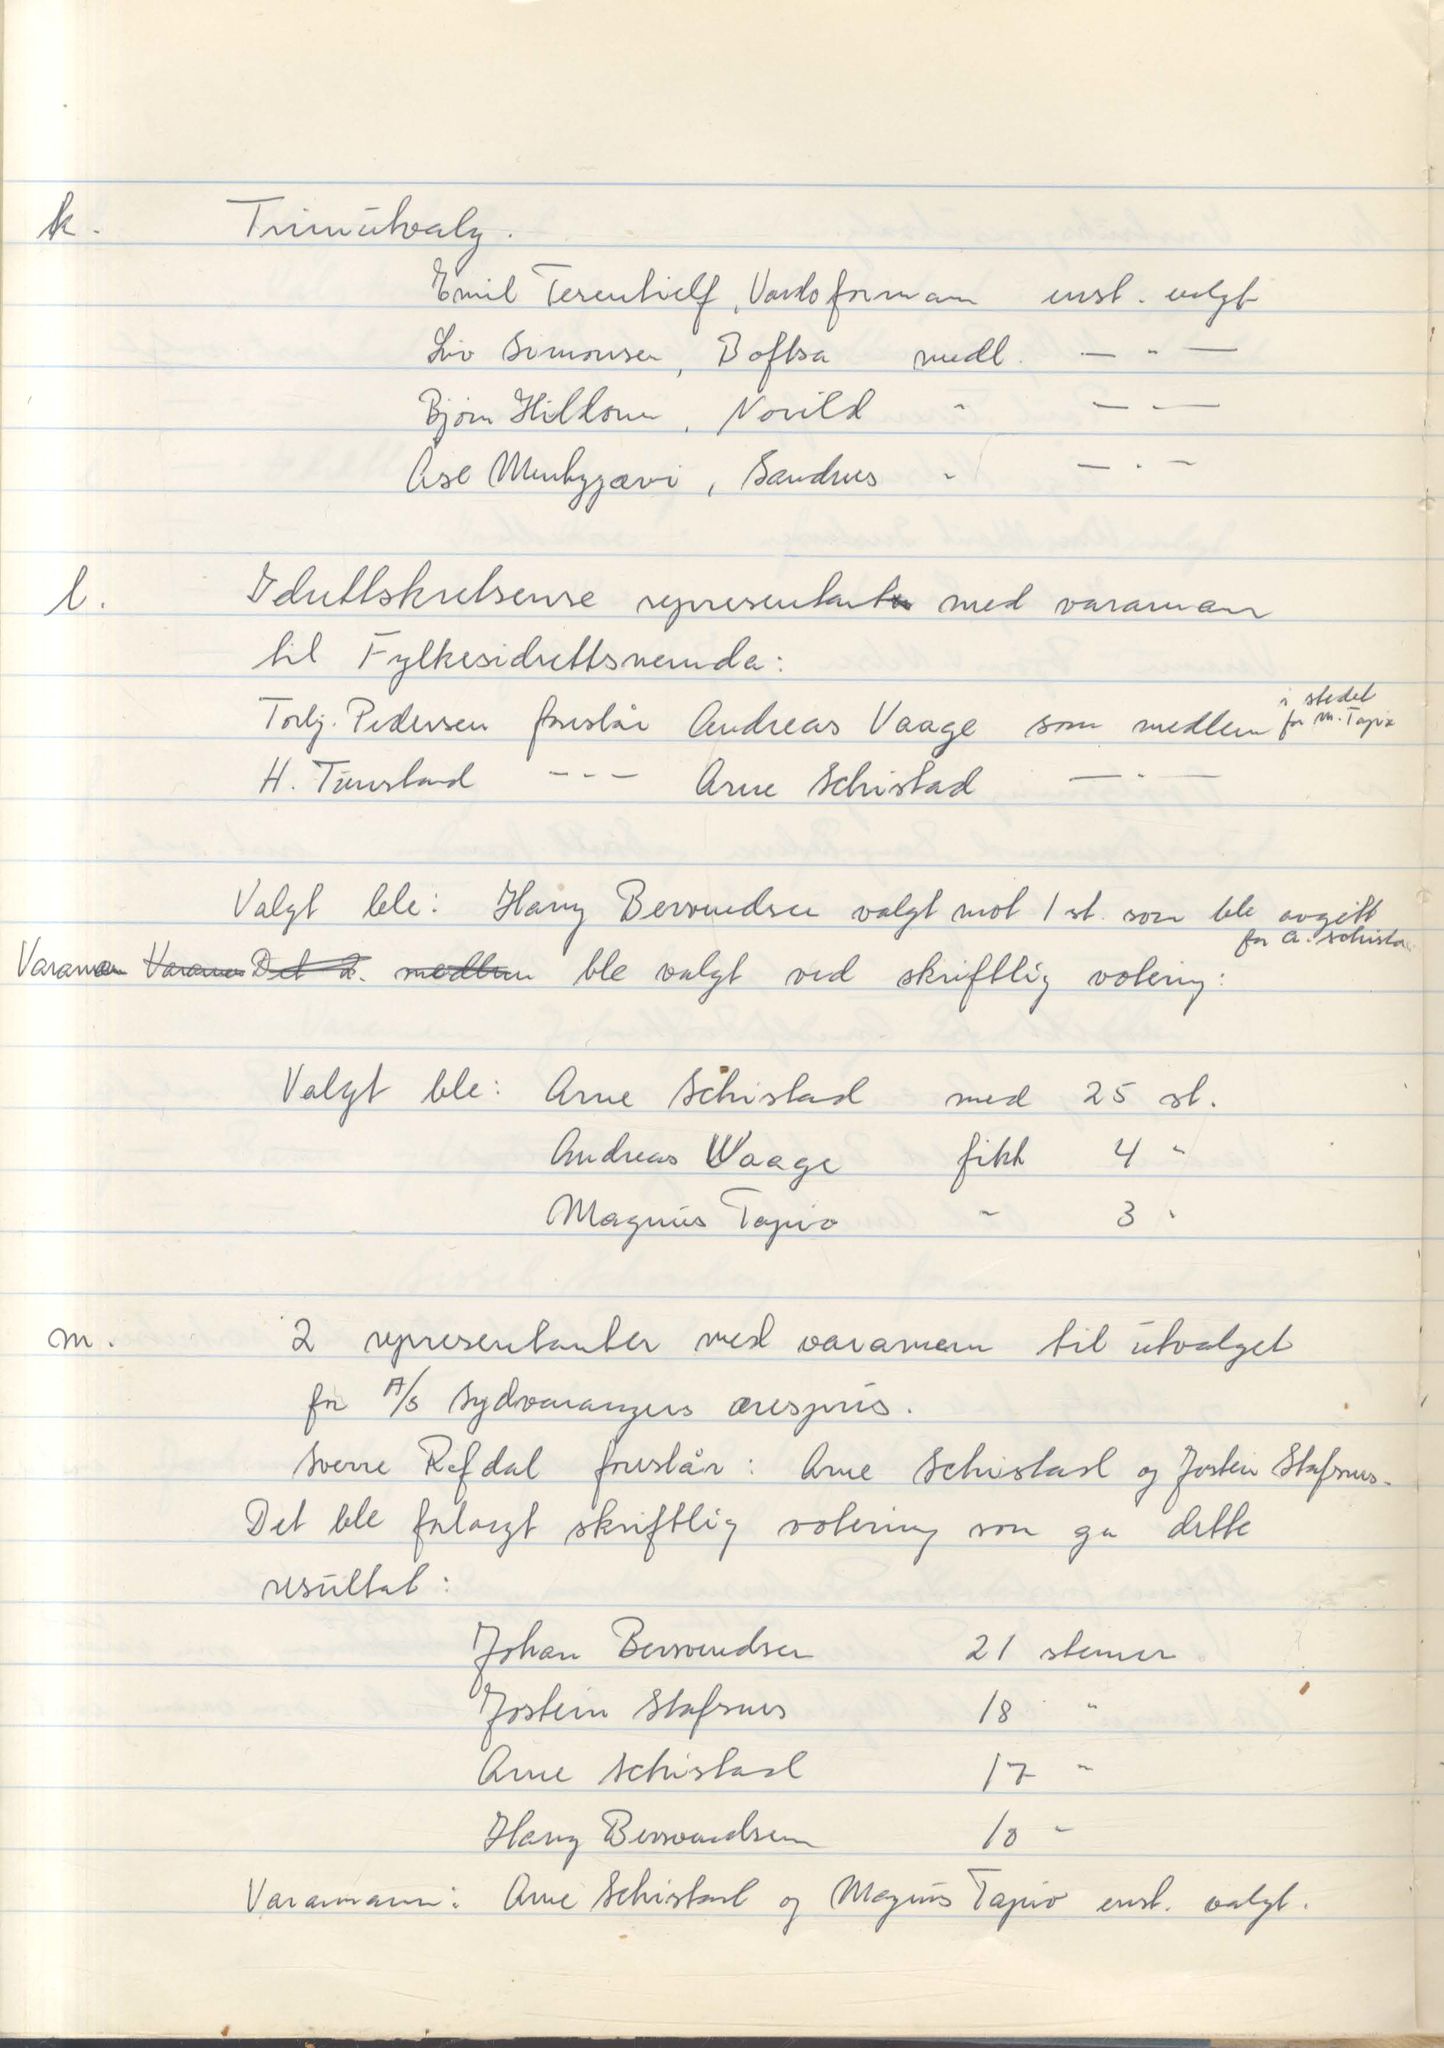 k. Trimutvalg.
Emil Terentieff, Vardo formann enst. valgt
Liv Simonsen, Boftsa medl. — " —
Bjørn Hillonen, Novild " — " —
Åse , Sandnes " — " —
l. Idrettskretsense representant med varamann
til Fylkesidrettsnemnda:
Torbj. Pedersen foreslår Andreas Vaage som medlem i stedet
for M. Tapio
H. Tunstand - - - Arne Schistad — " —
Valgt ble: Harry Bervendsen valgt mot 1 st. som ble avgitt
for A. Schistad
Varamann Varaman Det 2. medlem ble valgt ved skriftlig votering:
Valgt ble: Arne Schistad med 25 st.
Andreas Waage fikk 4 "
Magnus Tapio " 3 "
m. 2 representanter med varamenn til utvalget
for A/S Sydvarangers ærespris.
Sverre Refdal foreslår: Arne Schistad og Jostein Stafsnes.
Det ble forlangt skriftlig votering som ga dette
resultat:
Johan Bervendsen 21 stemer
Jostein Stafsnes 18 "
Arne Schistad 17 "
Harry Bervendsen 10 "
Varamann: Arne Schistad og Magnus Tapio enst. valgt.